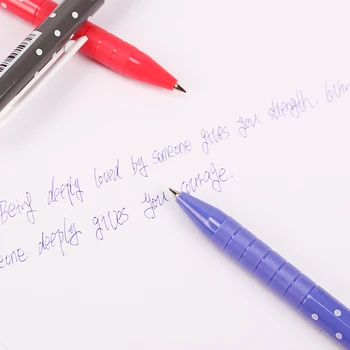 Being deeply loved by someone gives you strength.
deeply gives you courage.